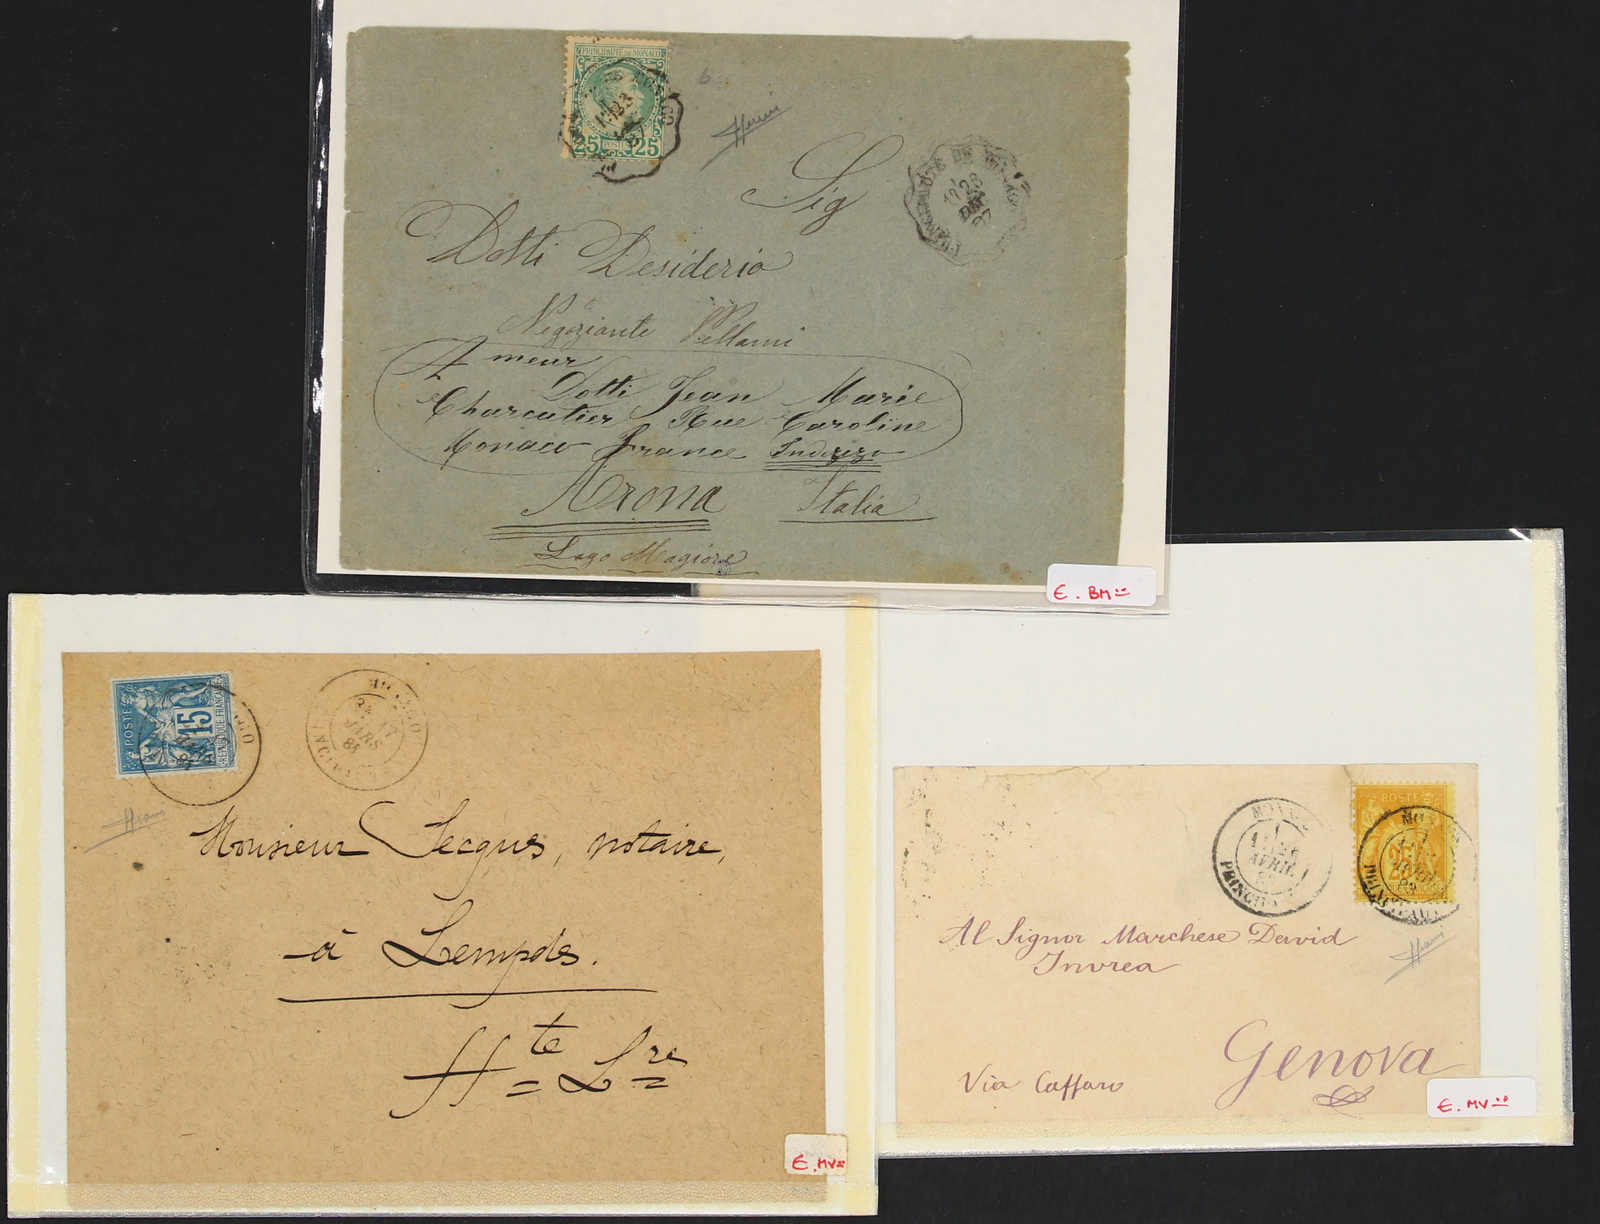 PRINCIPAUTÉ DE MONACO
25 POSTES 25
Sig
Dotti Desiderio
Negoziante Pellami
meur
Dotti Jean Marie
Charcutier Rue Caroline
Monaco France Indirizo
Arona Italia
Lago Magiore
PRINCIPAUTE DE MONACO
28
DEC
€. BM
POSTE
15
REPUBLIQUE FRANÇAISE
MONACO
MARS
Monsieur Jecques, notaire,
à Lempdes.
Hte Lre
€. MV
POSTE
25
MONACO
AVRIL
PRINCIPAUTE
Al Signor Marchese David
Invrea
Genova
Via Caffaro
€. MV